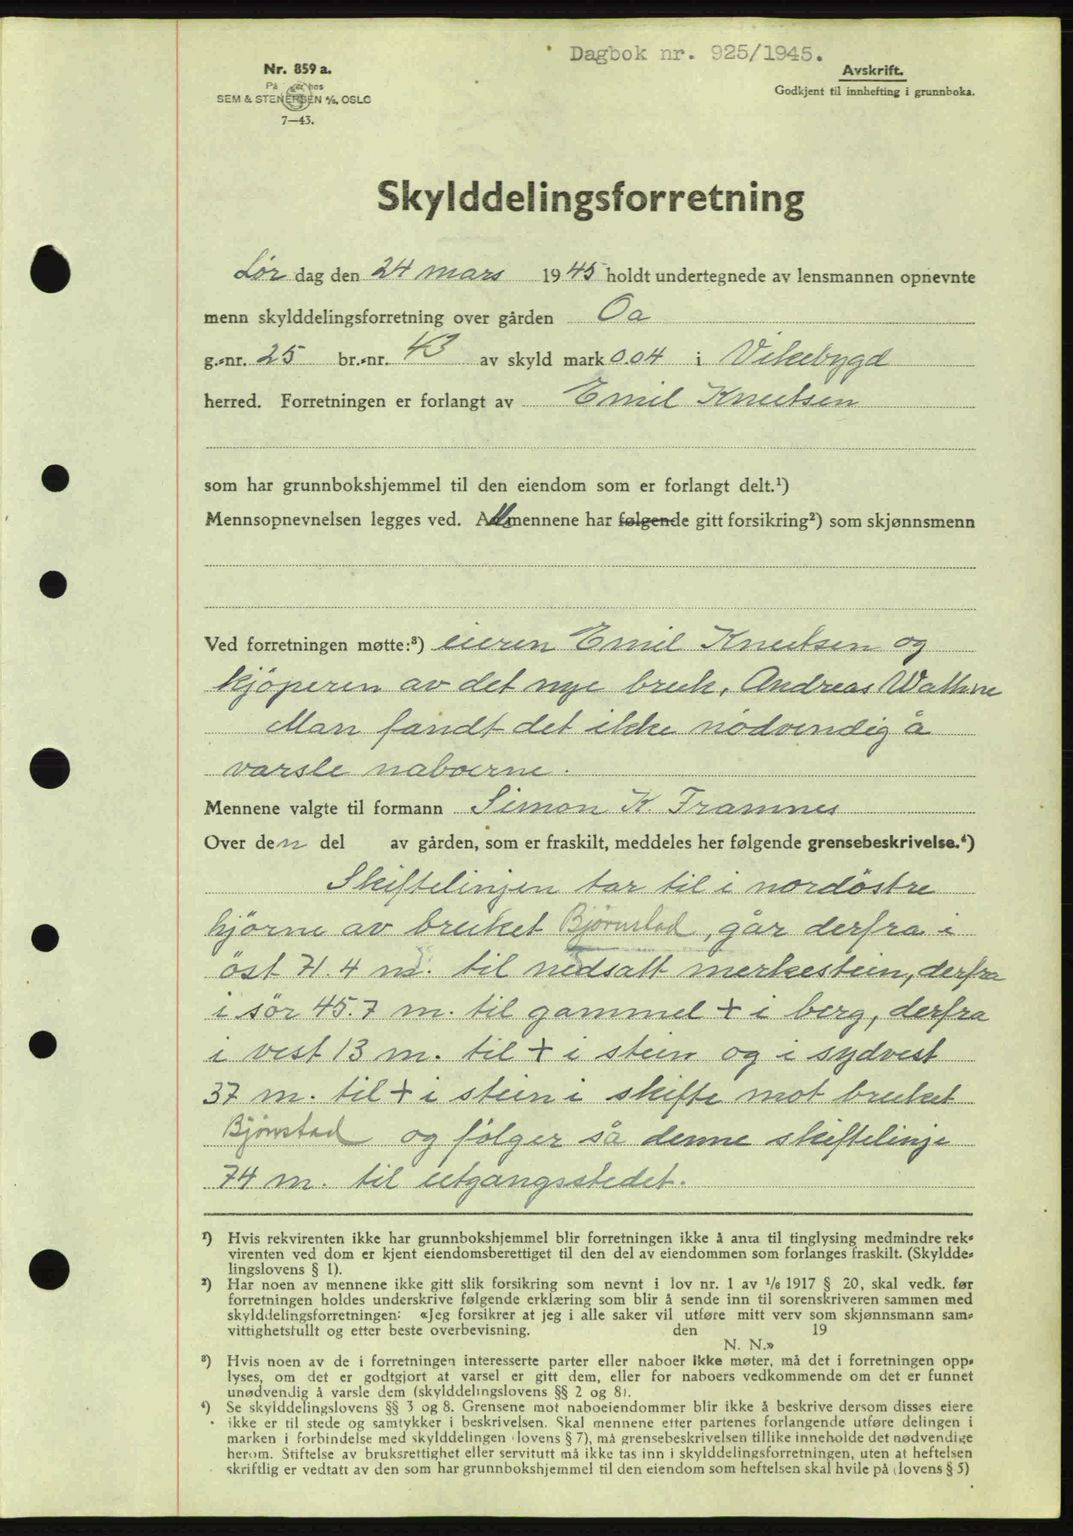 Dagbok nr. 925/1945.
Nr. 859 a.
På hos
SEM & STENERSEN A/S, OSLO
7—43.
Avskrift.
Godkjent til innhefting i grunnboka.
Skylddelingsforretning
Lør dag den 24 mars 1945 holdt undertegnede av lensmannen opnevnte
menn skylddelingsforretning over gården Oa
g.-nr. 25 br.-nr. 43 av skyld mark 0.04 i Vikebygd
herred. Forretningen er forlangt av Emil Knutsen
som har grunnbokshjemmel til den eiendom som er forlangt delt.¹)
Mennsopnevnelsen legges ved. Alle mennene har følgende gitt forsikring²) som skjønnsmenn
Ved forretningen møtte:³) eieren Emil Knutsen og
kjöperen av det nye bruk, Andreas Wathne
Man fandt det ikke nödvendig å
varsle naboerne.
Mennene valgte til formann Simon K. Framnes
Over den del av gården, som er fraskilt, meddeles her følgende grensebeskrivelse.⁴)
Skiftelinjen tar til i nordöstre
hjörne av bruket Bjørnstad, går derfra i
öst 71.4 m. til nedsatt merkestein, derfra
i sör 45.7 m. til gammel + i berg, derfra
i vest 13 m. til + i stein og i sydvest
37 m. til + i stein i skifte mot bruket
Bjørnstad og fölger så denne skiftelinje
74 m. til utgangsstedet.
¹) Hvis rekvirenten ikke har grunnbokshjemmel blir forretningen ikke å anta til tinglysing medmindre rek-
virenten ved dom er kjent eiendomsberettiget til den del av eiendommen som forlanges fraskilt. (Skyldde-
lingslovens § 1).
²) Har noen av mennene ikke gitt slik forsikring som nevnt i lov nr. 1 av ¹/₆ 1917 § 20, skal vedk. før
forretningen holdes underskrive følgende erklæring som blir å sende inn til sorenskriveren sammen med
skylddelingsforretningen: «Jeg forsikrer at jeg i alle saker vil utføre mitt verv som skjønnsmann sam-
vittighetsfullt og etter beste overbevisning. den 19
N. N.»
³) Hvis noen av de i forretningen interesserte parter eller naboer ikke møter, må det i forretningen opp-
lyses, om det er godtgjort at varsel er gitt dem, eller for naboers vedkommende om det er funnet
unødvendig å varsle dem (skylddelingslovens §§ 2 og 8).
⁴) Se skylddelingslovens §§ 3 og 8. Grensene mot naboeiendommer blir ikke å beskrive dersom disses eiere
ikke er til stede og samtykker i beskrivelsen. Skal mennene etter partenes forlangende utføre delingen i
marken i forbindelse med skylddelingen (lovens § 7), må grensebeskrivelsen tillike inneholde det nødvendige
herom. Stiftelse av bruksrettighet eller servitutt må ikke tas inn i skylddelingsforretningen, uten at heftelsen
skriftlig er vedtatt av den som har grunnbokshjemmel til den eiendom som heftelsen skal hvile på (lovens § 5)